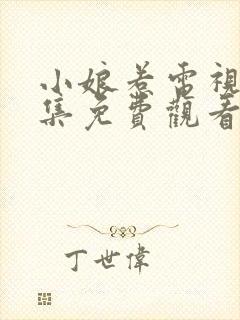 小娘惹電視
集免費觀看
丁世偉